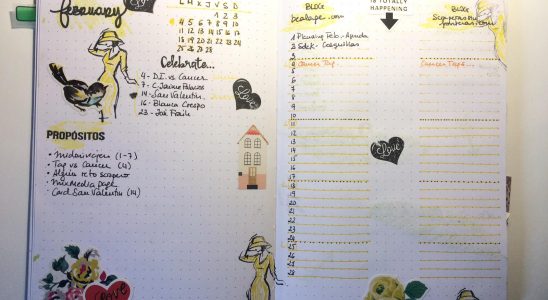 february
L M X J V S D
1 2 3
4 5 6 7 8 9 10
11 12 13 14 15 16 17
18 19 20 21 22 23 24
25 26 27 28
Celebrate...
4 - D.I. vs Cancer
7 - C. Jaime Palacios
14 - San Valentin
16 - Blanca Crespo
23 - José Fraile
Love
PROPÓSITOS
(1-7)
Tag vs Cancer (4)
Algún reto scrapero
MixMedia
Card San Valentín (14)
Love
BLOG
IS TOTALLY
HAPPENING
BLOG
1 Planning Feb. - Agenda
2
3
4 Cancer Tag
Cancer Tag...
5
6
7
8
9
10
11
12
13
14
15
16
17
18
19
20
21
22
23
24
25
26
27
28
Love